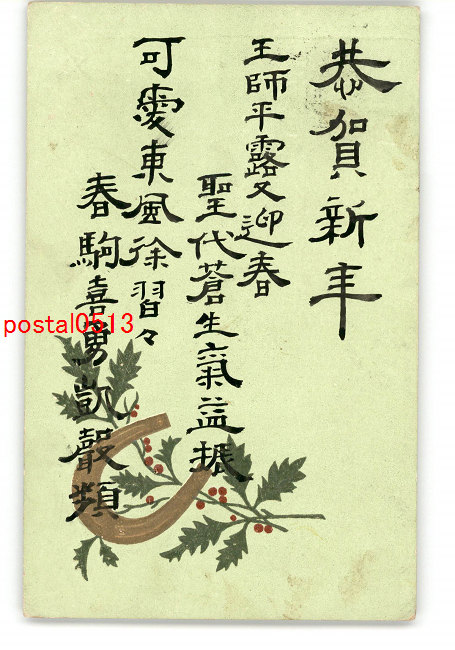 恭賀新年
王師平露又迎春
聖代蒼生氣益振
可愛東風徐習々
春駒喜勇凱聲頻
postal0513